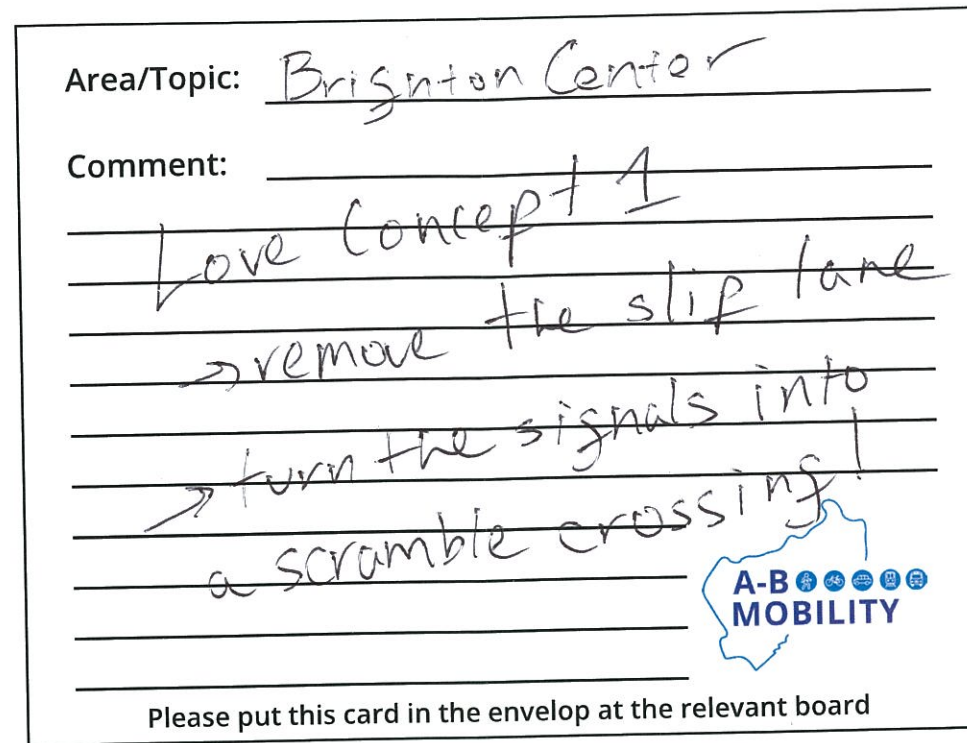 Area/Topic: Brignton Center
Comment:
Love Concept 1
→ remove the slip lane
→ turn the signals into
a scramble crossing!
A-B
MOBILITY
Please put this card in the envelop at the relevant board